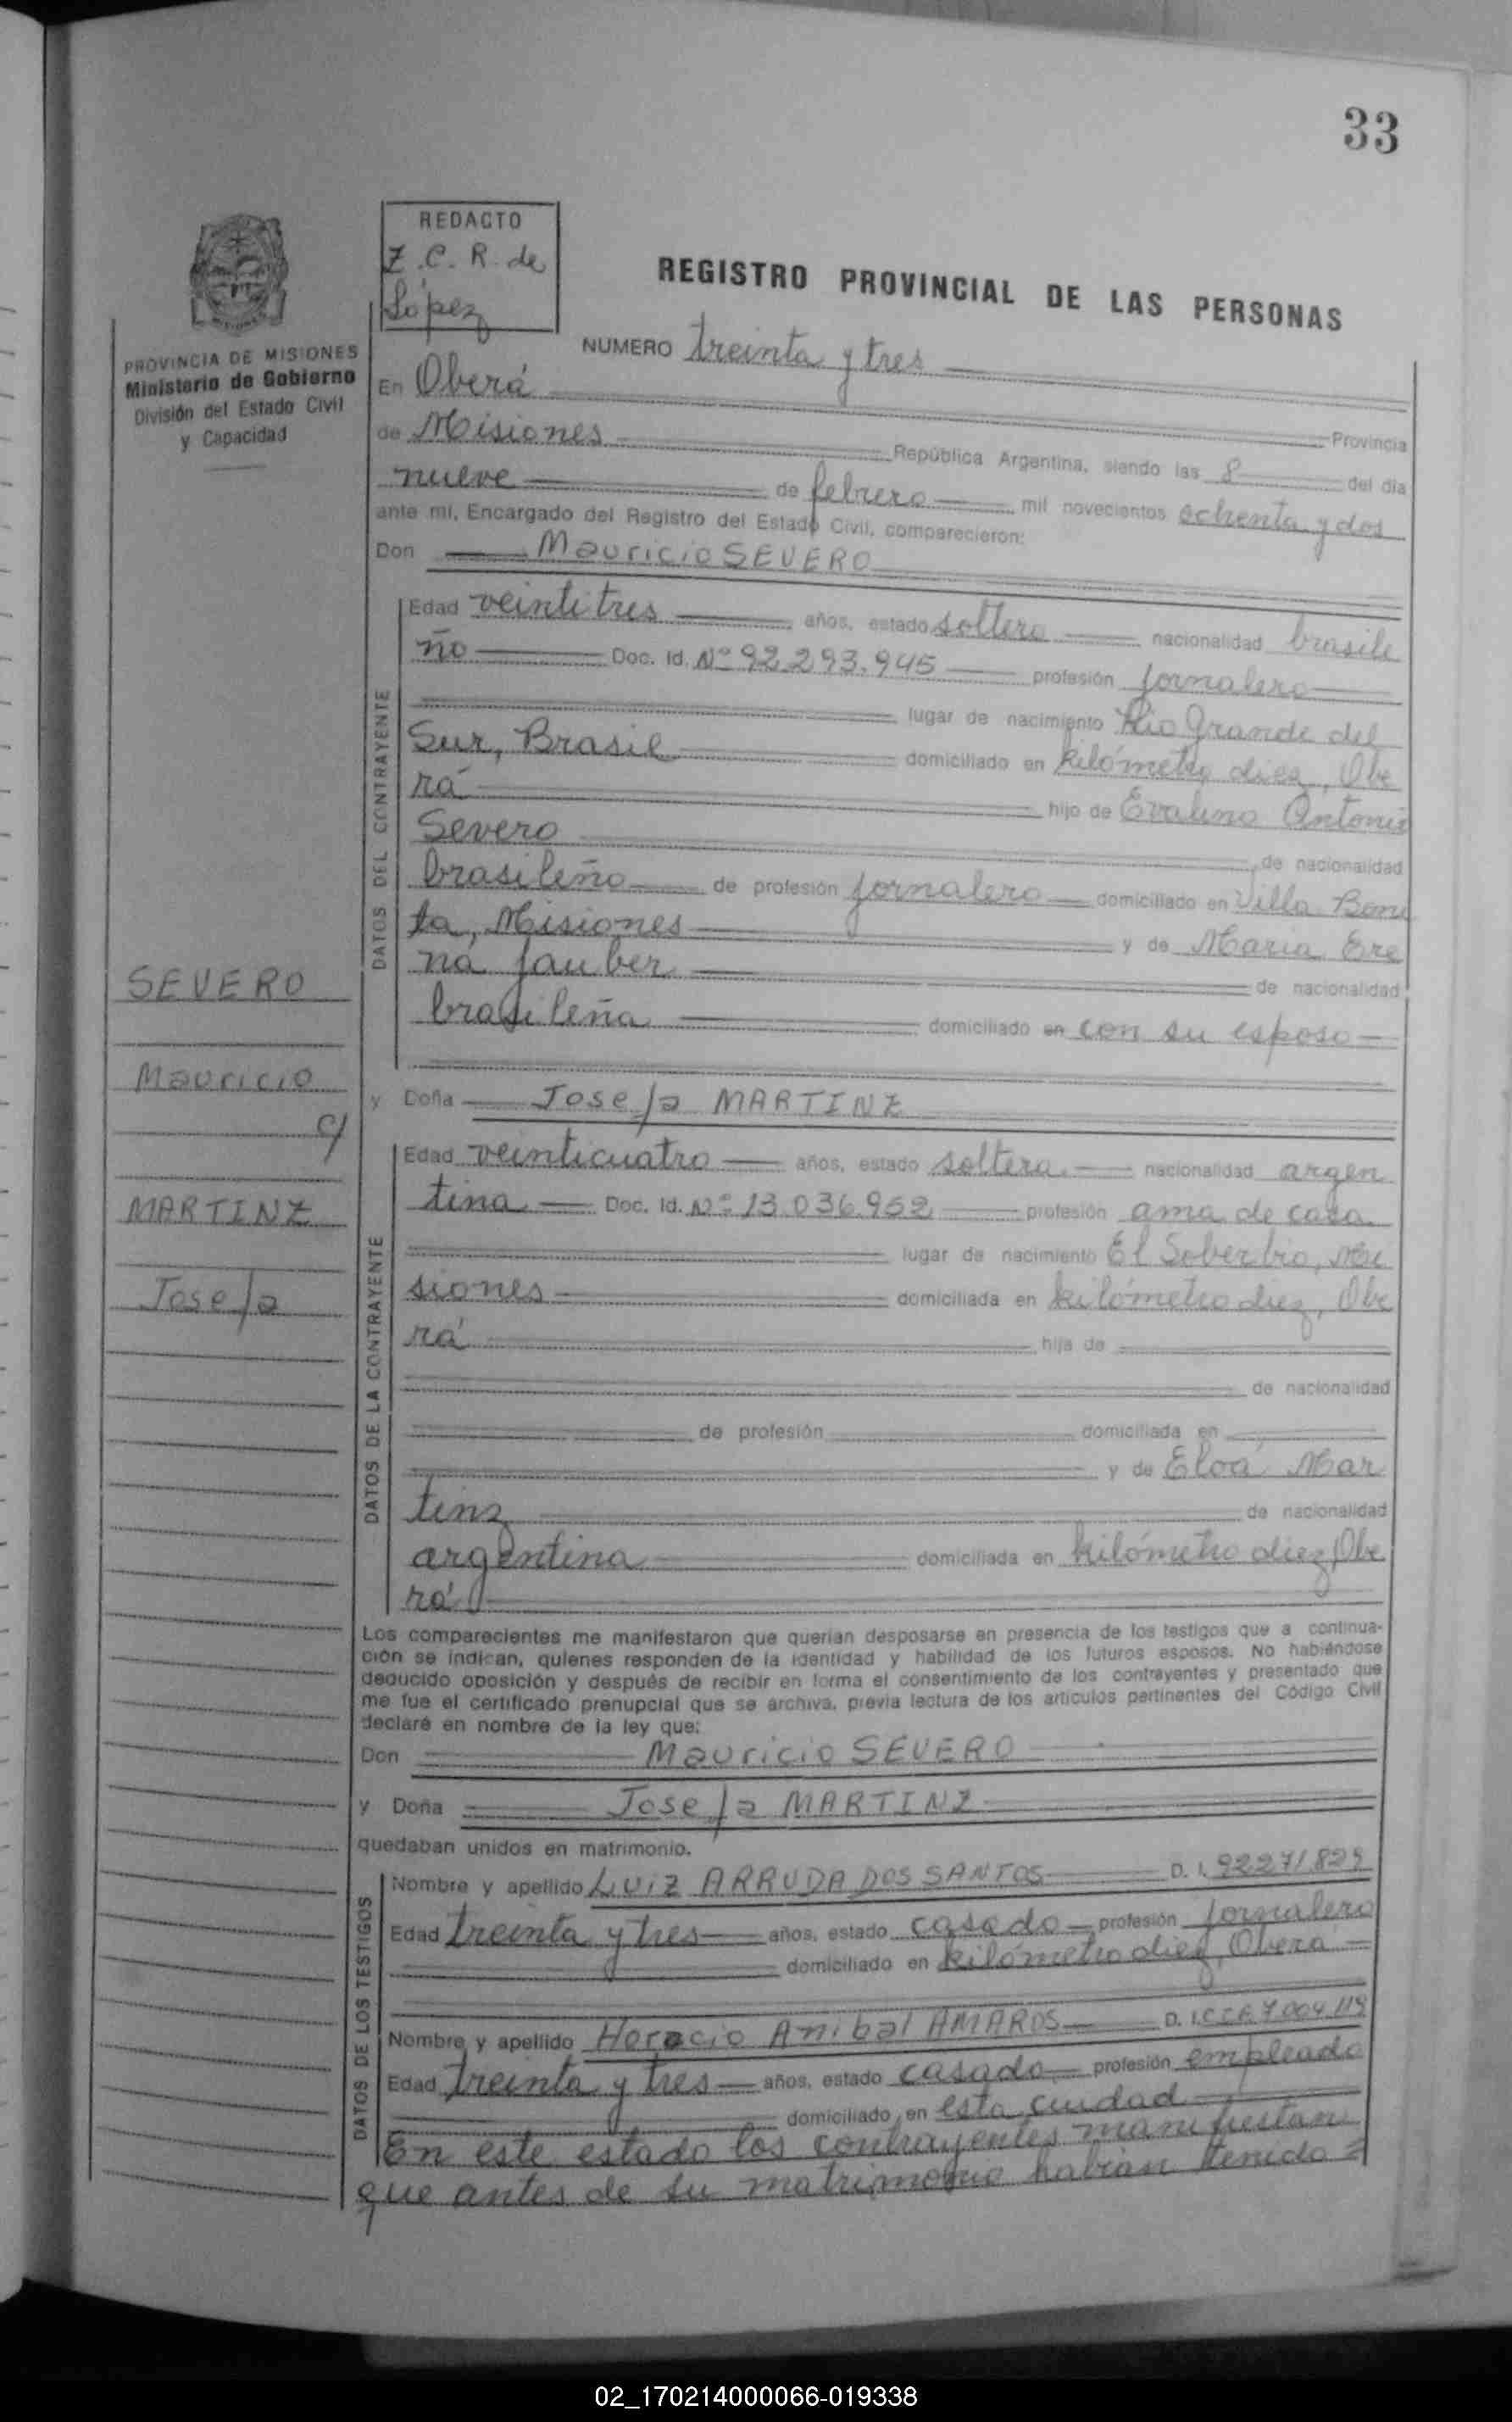 33
REDACTO
Z.C.R. de
López
REGISTRO PROVINCIAL DE LAS PERSONAS
NUMERO treinta y tres
PROVINCIA DE MISIONES
Ministerio de Gobierno
División del Estado Civil
y Capacidad
En Oberá
Provincia
de Misiones República Argentina, siendo las 8 del día
nueve de febrero mil novecientos ochenta y dos
ante mí, Encargado del Registro del Estado Civil, comparecieron:
Don Mauricio SEVERO
DATOS DEL CONTRAYENTE
Edad veintitres años, estado soltero nacionalidad brasile
ño Doc. Id. Nº 92.293.945 profesión jornalero
lugar de nacimiento Rio Grande del
Sur, Brasil domiciliado en kilómetro diez, Obe
rá hijo de Evalino Antonio
Severo de nacionalidad
brasileño de profesión jornalero domiciliado en Villa Boni
ta, Misiones y de Maria Ere
na Jauber de nacionalidad
brasileña domiciliado en con su esposo
SEVERO
Mauricio
c/
MARTINZ
Josefa
y Doña Josefa MARTINZ
DATOS DE LA CONTRAYENTE
Edad veinticuatro años, estado soltera nacionalidad argen
tina Doc. Id. Nº 13.036.952 profesión ama de casa
lugar de nacimiento El Soberbio, Mi
siones domiciliada en kilómetro diez, Obe
rá hija de
de nacionalidad
de profesión domiciliada en
y de Eloá Mar
tinz de nacionalidad
argentina domiciliada en kilómetro diez, Obe
rá
Los comparecientes me manifestaron que querían desposarse en presencia de los testigos que a continua-
ción se indican, quienes responden de la identidad y habilidad de los futuros esposos. No habiéndose
deducido oposición y después de recibir en forma el consentimiento de los contrayentes y presentado que
me fue el certificado prenupcial que se archiva, previa lectura de los artículos pertinentes del Código Civil
declaré en nombre de la ley que:
Don Mauricio SEVERO
y Doña Josefa MARTINZ
quedaban unidos en matrimonio.
DATOS DE LOS TESTIGOS
Nombre y apellido LUIZ ARRUDA DOS SANTOS D. I. 92271829
Edad treinta y tres años, estado casado profesión jornalero
domiciliado en kilómetro diez, Oberá
Nombre y apellido Horacio Anibal AMAROS D. I. 7.004.119
Edad treinta y tres años, estado casado profesión empleado
domiciliado en esta ciudad
En este estado los contrayentes manifiestan
que antes de su matrimonio habían tenido =
02_170214000066-019338